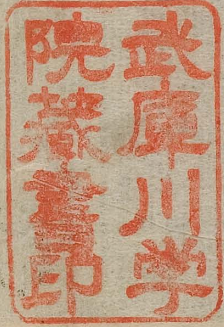 武庫川学
院蔵書印